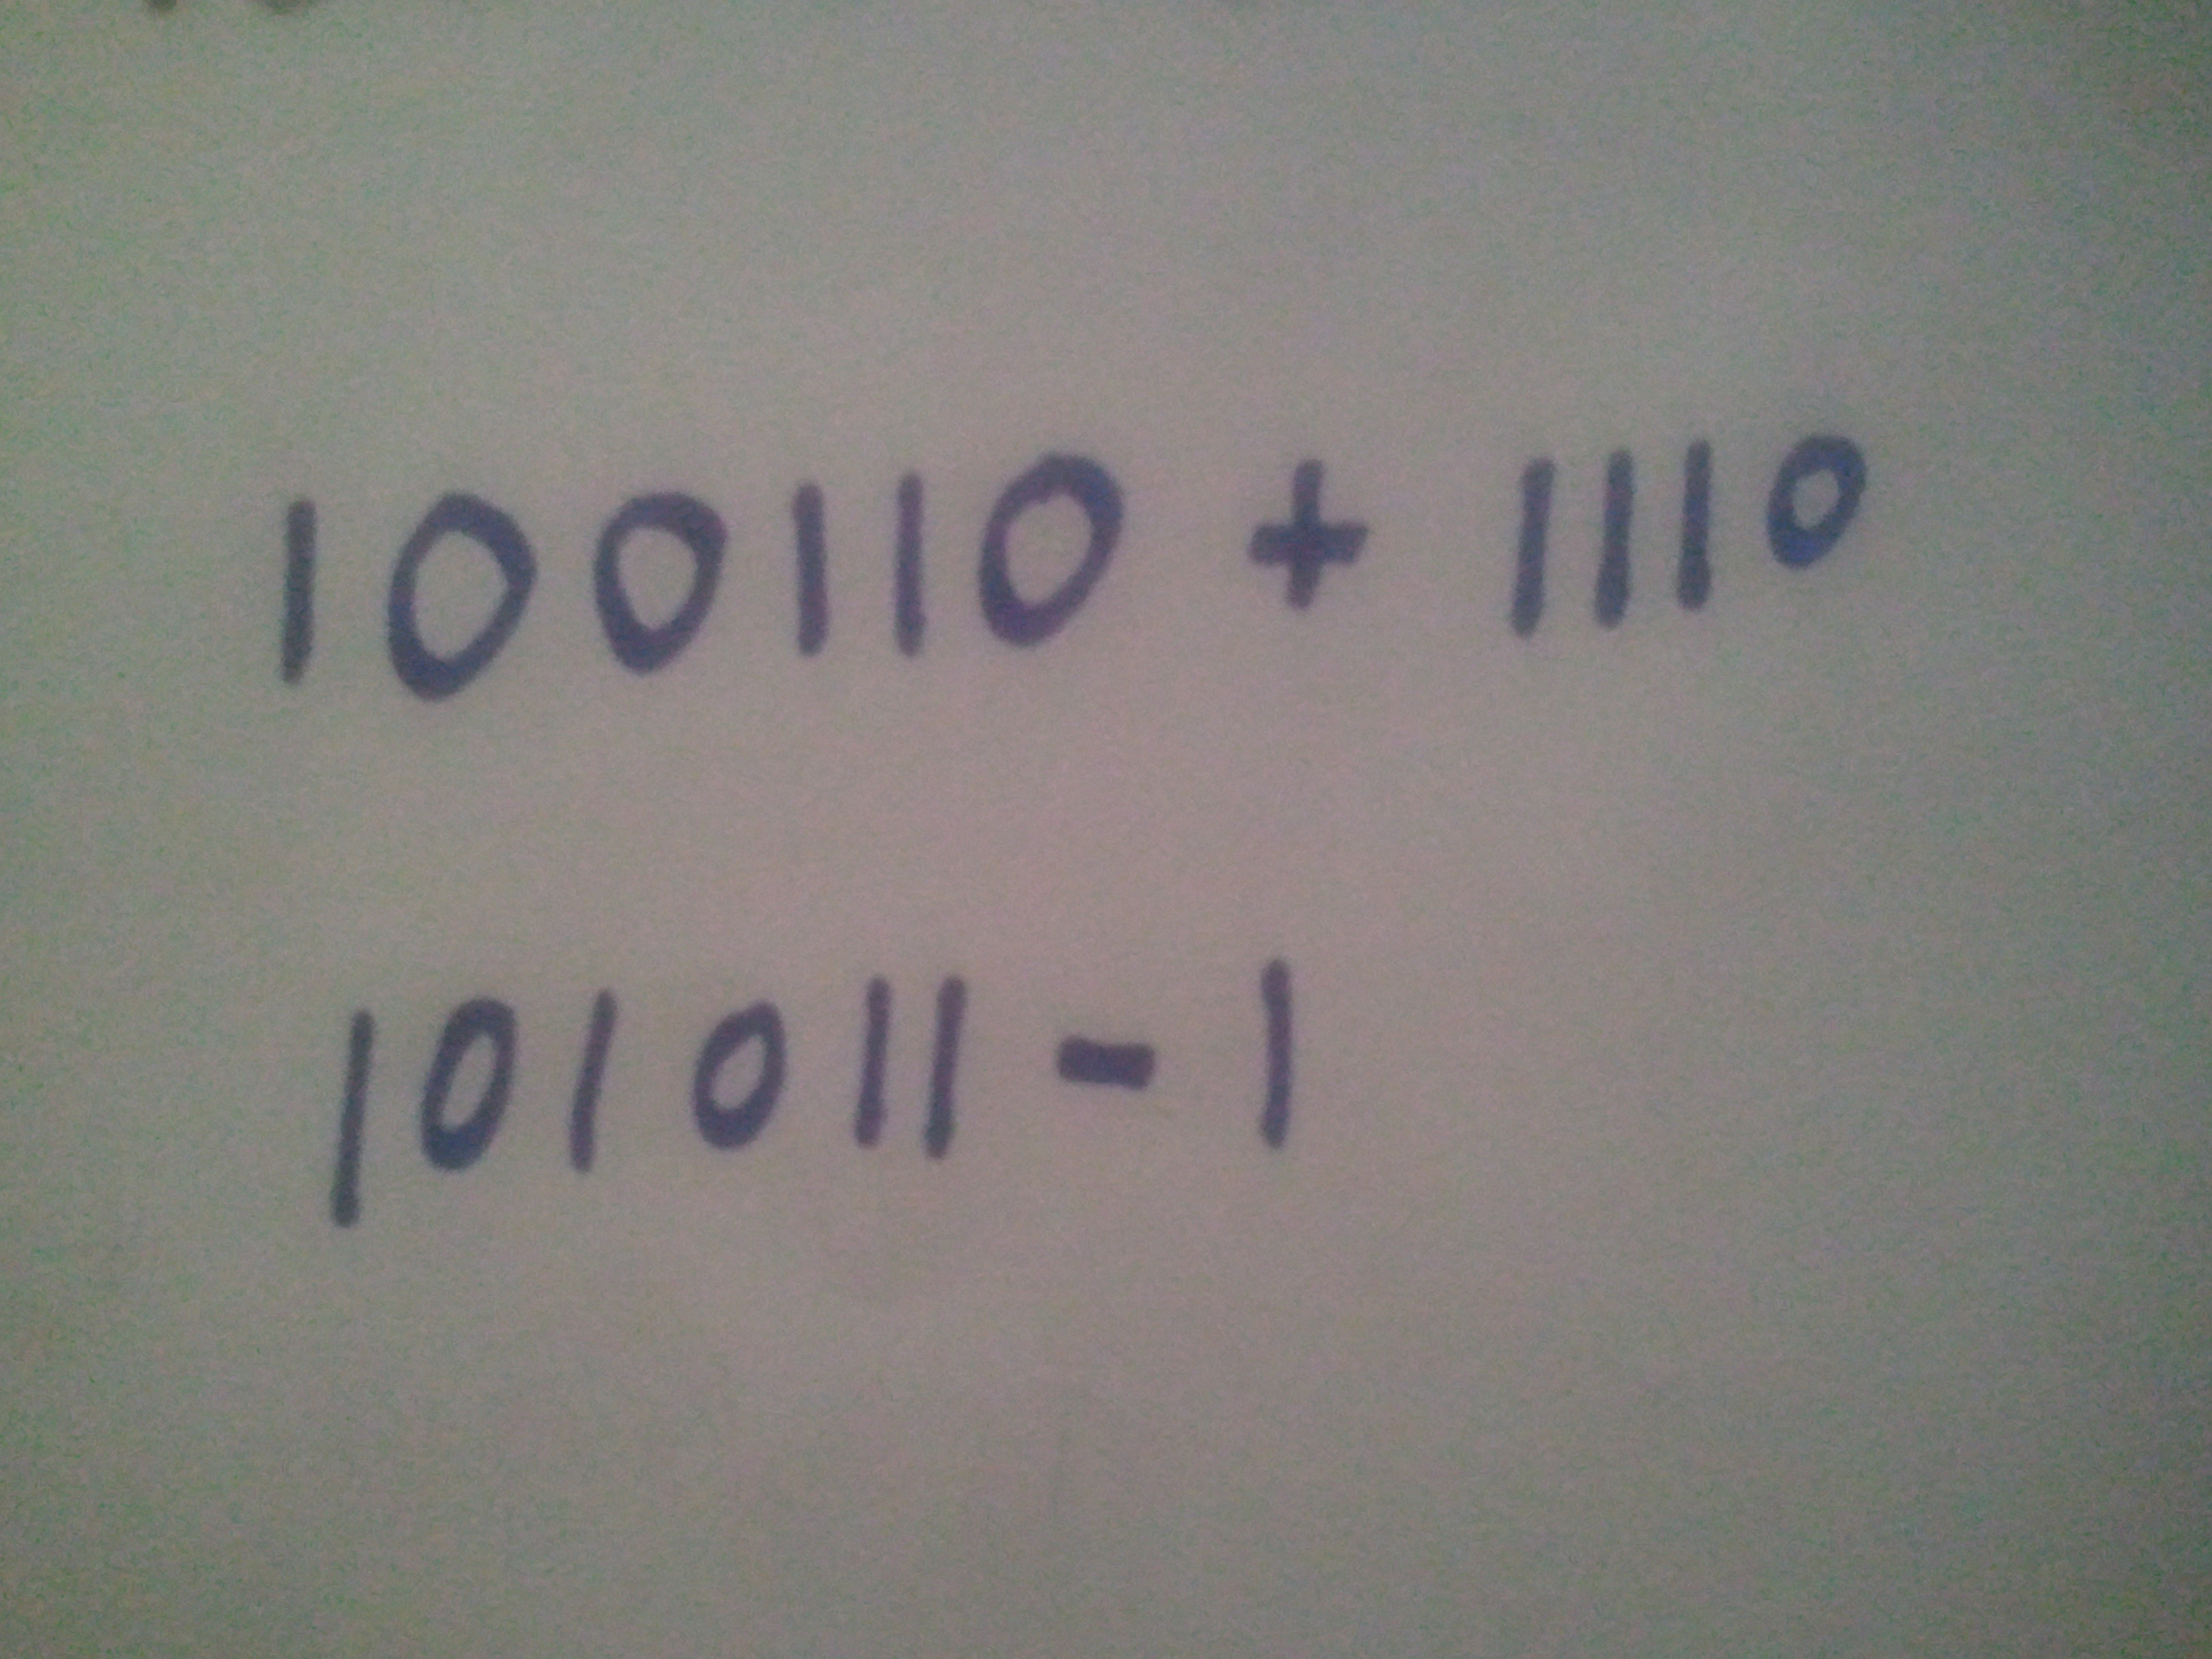 100110 + 1110
101011 - 1